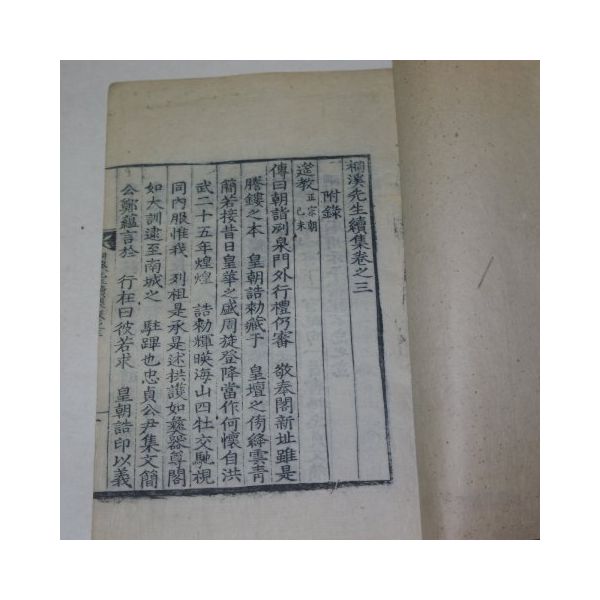 桐溪先生續集卷之三
附錄
筵教 正宗朝己未
傳曰朝詣列泉門外行禮仍審 敬奉閣新址雖是
謄鏤之本 皇朝誥勅藏于 皇壇之傍絳雲靑
簡若接昔日皇華之盛周旋登降當作何懷自洪
武二十五年煌煌 誥勅輝暎海山四牡交馳視
同內服惟我 列祖是承是述拱護如彝器尊閣
如大訓逮至南城之 駐蹕也忠貞公尹集文簡
公鄭蘊言於 行在曰彼若求 皇朝誥印以義